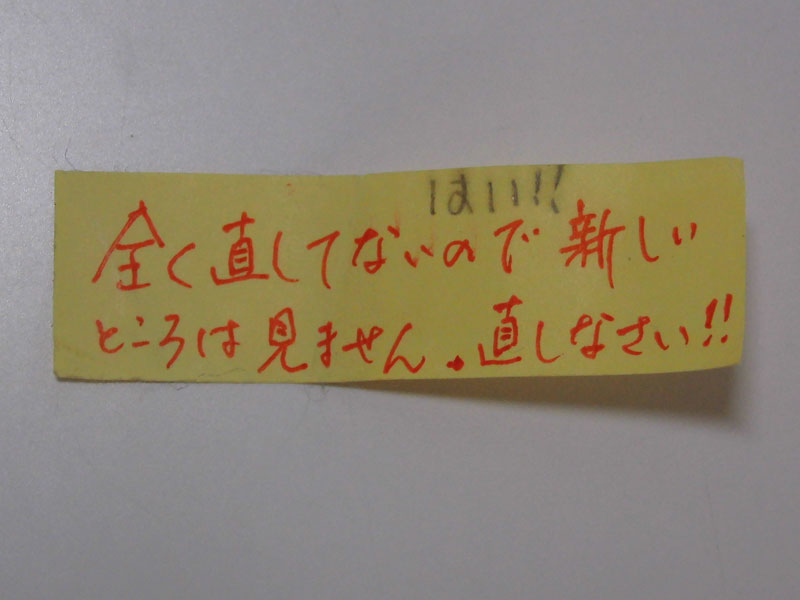 はい!!
全く直してないので新しい
ところは見ません。直しなさい!!